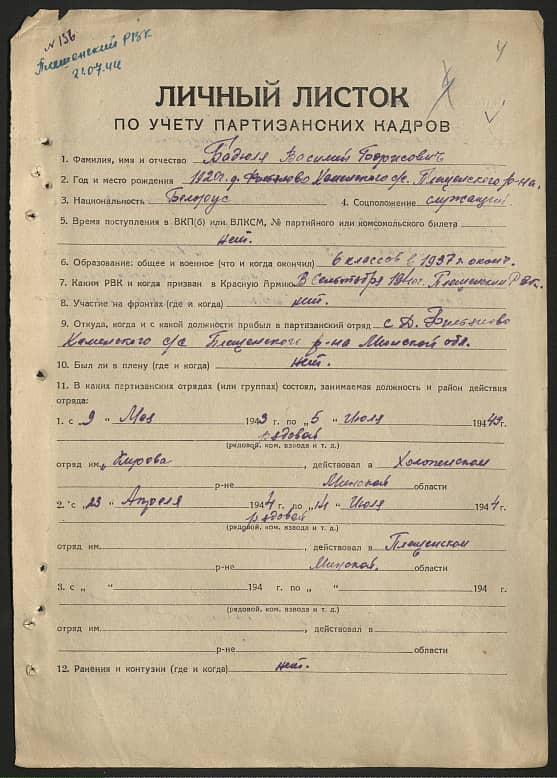 N 156
Плещенский РВК
21.07.44
4
ЛИЧНЫЙ ЛИСТОК
ПО УЧЕТУ ПАРТИЗАНСКИХ КАДРОВ
1. Фамилия, имя и отчество Бадюля Василий Борисович
2. Год и место рождения д. Каменского с/с. Плещенского р-на.
3. Национальность Белорус 4. Соцположение служащий.
5. Время поступления в ВКП(б) или ВЛКСМ, № партийного или комсомольского билета
нет.
6. Образование: общее и военное (что и когда окончил) 6 классов в 1937 г. оконч.
7. Каким РВК и когда призван в Красную Армию В Сентября Плещенский РВК.
8. Участие на фронтах (где и когда) нет.
9. Откуда, и с какой должности прибыл в партизанский отряд с д.
Каменского с/с Плещенского р-на Минской обл.
10. Был ли в плену (где и когда) нет.
11. В каких партизанских отрядах (или группах) состоял, занимаемая должность и район действия
отряда:
1. с „9 “ Мая 1943 г. по „5 “ Июля 1944 г.
рядовой
(рядовой, ком. взвода и т. д.)
отряд им. Кирова, действовал в Холопенском
р-не Минской области
2. с „23 “ Апреля 1944 г. по „14 “ Июля 1944 г.
рядовой
(рядовой, ком. взвода и т. д.)
отряд им., действовал в Плещенском
р-не Минской. области
3. с „ “ 194 г. по „ “ 194 г.
(рядовой, ком. взвода и т. д.)
отряд им., действовал в
р-не области
12. Ранения и контузии (где и когда) нет.